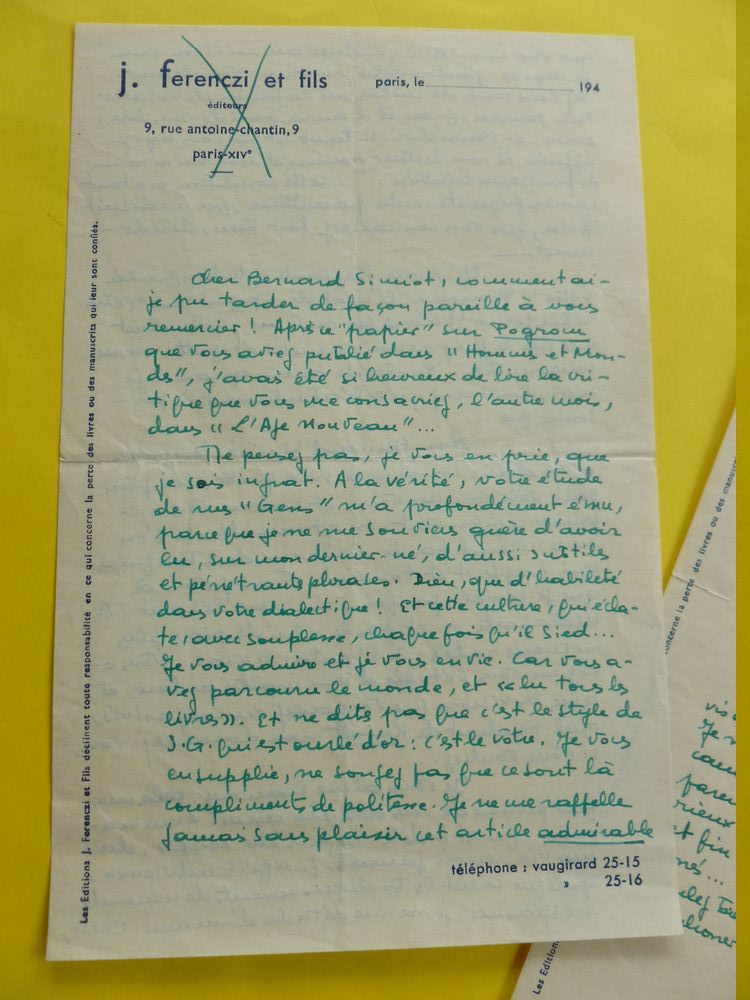 j. ferenczi et fils
paris, le 194
éditeurs
9, rue antoine-chantin, 9
paris-XIVe
Les Editions J. Ferenczi et Fils déclinent toute responsabilité en ce qui concerne la perte des livres ou des manuscrits qui leur sont confiés.
Cher Bernard Simiot, comment ai-
je pu tarder de façon pareille à vous
remercier ! Après ce "papier" sur Pogrom
que vous aviez publié dans "Hommes et Mon-
des", j'avais été si heureux de lire la cri-
tique que vous me consacriez, l'autre mois,
dans "L'Age Nouveau"...
Ne pensez pas, je vous en prie, que
je sois ingrat. A la vérité, votre étude
de mes "Gens" m'a profondément ému,
parce que je ne me souviens guère d'avoir
lu, sur mon dernier-né, d'aussi subtiles
et pénétrants phrases. Dieu, que d'habileté
dans votre dialectique ! Et cette culture, qui écla-
te, avec souplesse, chaque fois qu'il sied...
Je vous admire et je vous envie. Car vous a-
vez parcouru le monde, et «lu tous les
livres». Et ne dites pas que c'est le style de
J.G. qui est ourlé d'or : c'est le vôtre. Je vous
en supplie, ne songez pas que ce sont là
compliments de politesse. Je ne me rappelle
jamais sans plaisir cet article admirable
téléphone : vaugirard 25-15
» 25-16
concerne la perte des livres ou des manus
Les Editions
Je
rieux
et fin